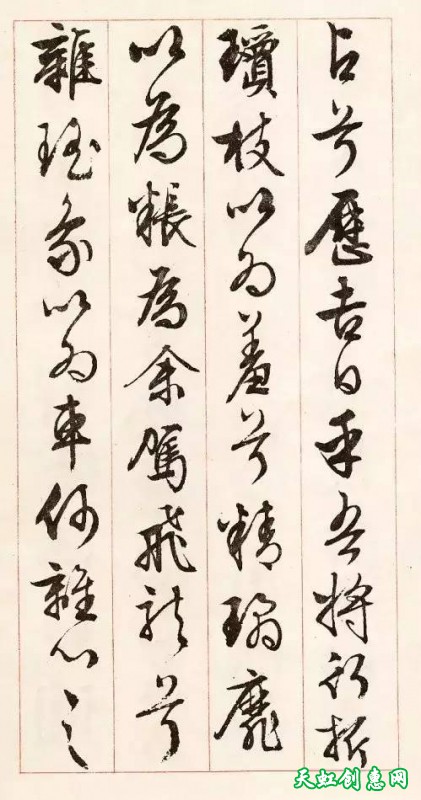 占兮歷吉日乎吾將行折
瓊枝以為羞兮精瓊靡
以為粻為余駕飛龍兮
雜瑤象以為車何離心之
天虹创意网